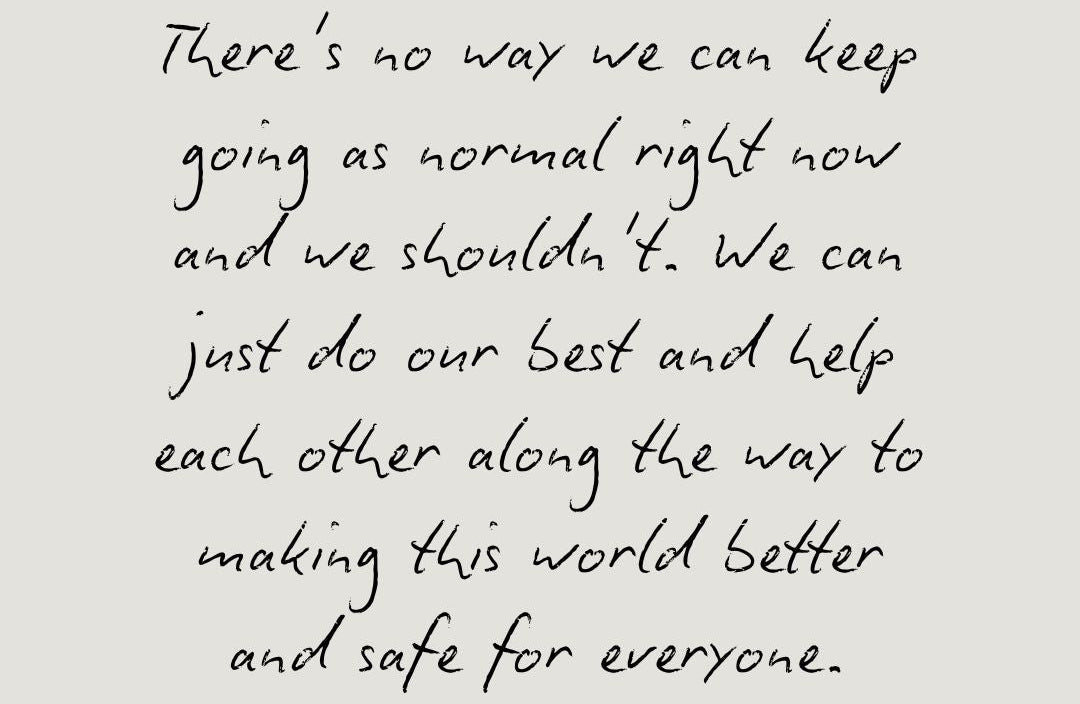 There's no way we can keep
going as normal right now
and we shouldn't. We can
just do our best and help
each other along the way to
making this world better
and safe for everyone.